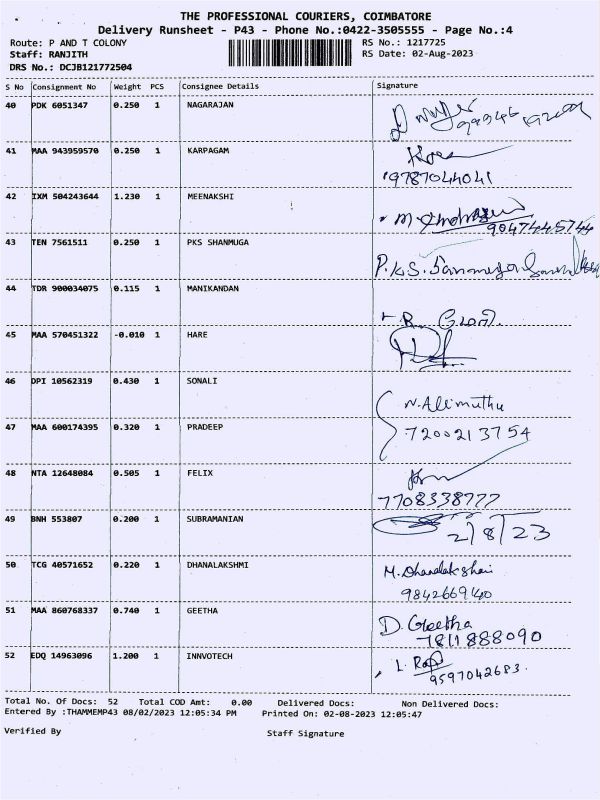 THE PROFESSIONAL COURIERS, COIMBATORE
Delivery Runsheet - P43 - Phone No.:0422-3505555 - Page No.:4
Route: P AND T COLONY RS No.: 1217725
Staff: RANJITH RS Date: 02-Aug-2023
DRS No.: DCJB121772504
S No Consignment No Weight PCS Consignee Details Signature
40 PDK 6051347 0.250 1 NAGARAJAN
41 MAA 943959570 0.250 1 KARPAGAM
9787044041
42 IXM 504243644 1.230 1 MEENAKSHI
9047445744
43 TEN 7561511 0.250 1 PKS SHANMUGA
P.K.S.
44 TDR 900034075 0.115 1 MANIKANDAN
45 MAA 570451322 -0.010 1 HARE
46 DPI 10562319 0.430 1 SONALI
N. Alimuthu
47 MAA 600174395 0.320 1 PRADEEP
7200213754
48 NTA 12648084 0.505 1 FELIX
7708338777
49 BNH 553807 0.200 1 SUBRAMANIAN
2/8/23
50 TCG 40571652 0.220 1 DHANALAKSHMI M. Dhanalakshmi
9842669140
51 MAA 860768337 0.740 1 GEETHA D. Geetha
7811888090
52 EDQ 14963096 1.200 1 INNVOTECH
9597042683.
Total No. Of Docs: 52 Total COD Amt: 0.00 Delivered Docs: Non Delivered Docs:
Entered By :THAMMEMP43 08/02/2023 12:05:34 PM Printed On: 02-08-2023 12:05:47
Verified By Staff Signature